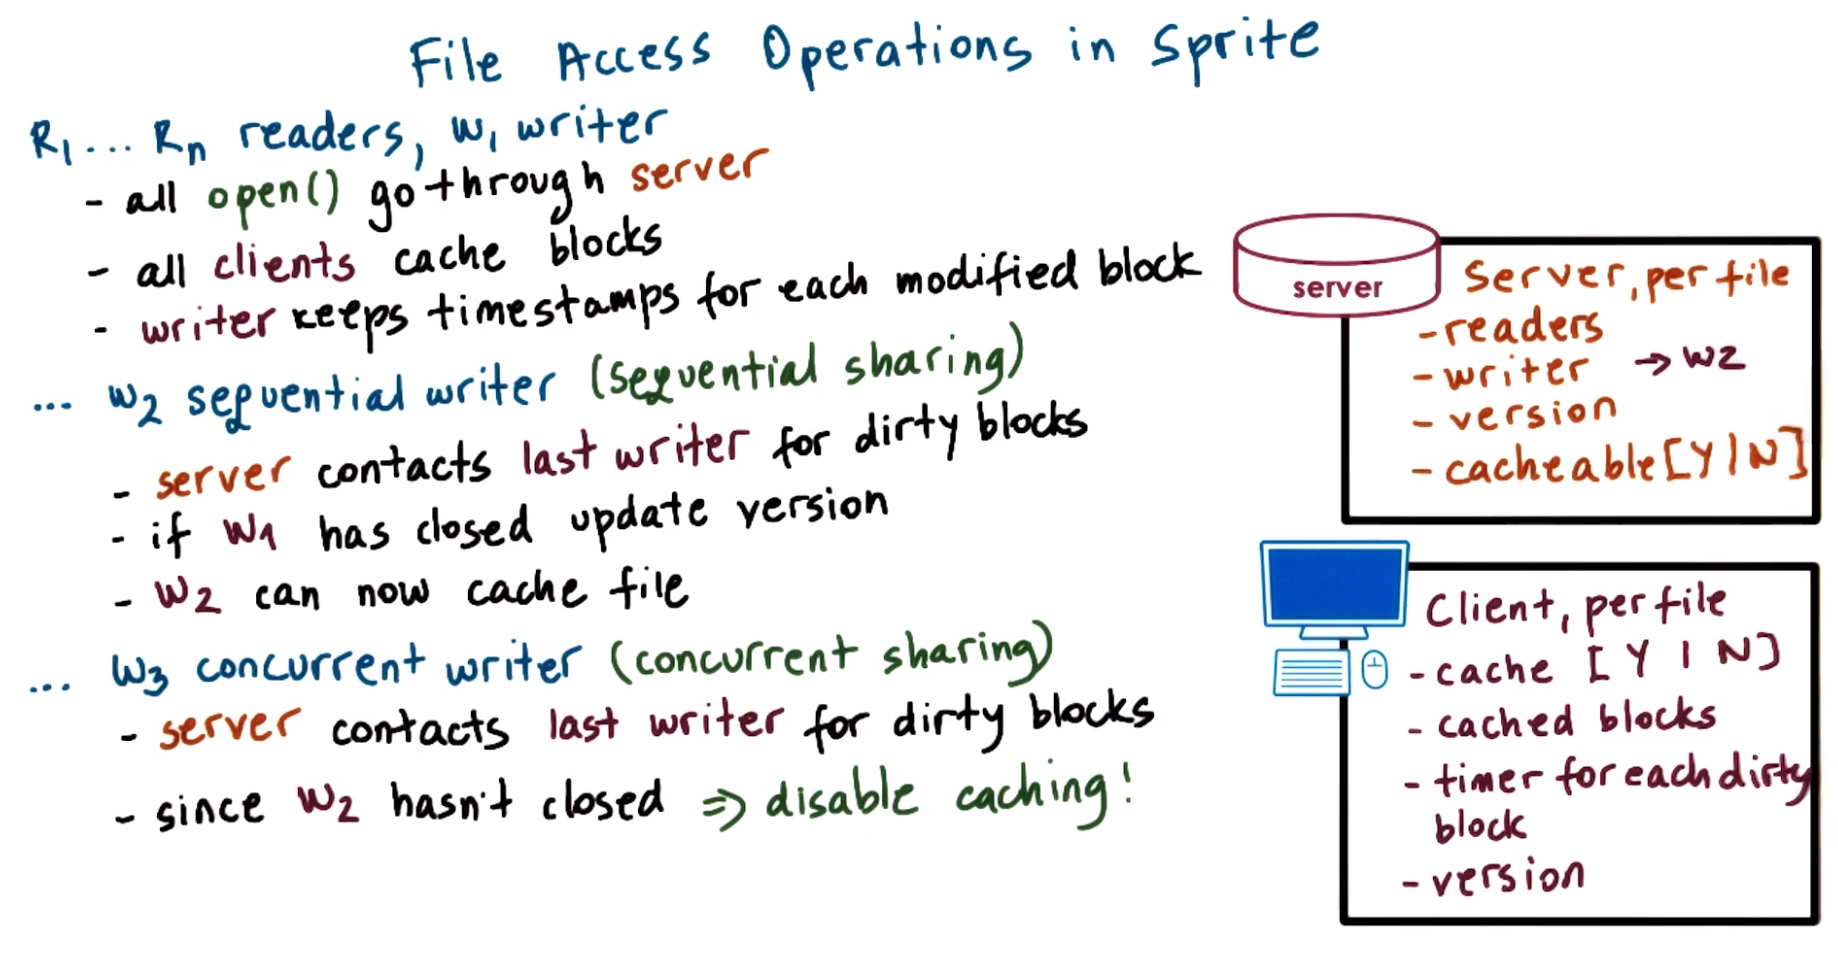 File Access Operations in Sprite
R1 ... Rn readers, w1 writer
- all open() go through server
- all clients cache blocks
- writer keeps timestamps for each modified block
... w2 sequential writer (sequential sharing)
- server contacts last writer for dirty blocks
- if w1 has closed update version
- w2 can now cache file
... w3 concurrent writer (concurrent sharing)
- server contacts last writer for dirty blocks
- since w2 hasn't closed => disable caching!
server
Server, per file
- readers
- writer → w2
- version
- cacheable [Y|N]
Client, per file
- cache [Y|N]
- cached blocks
- timer for each dirty
block
- version